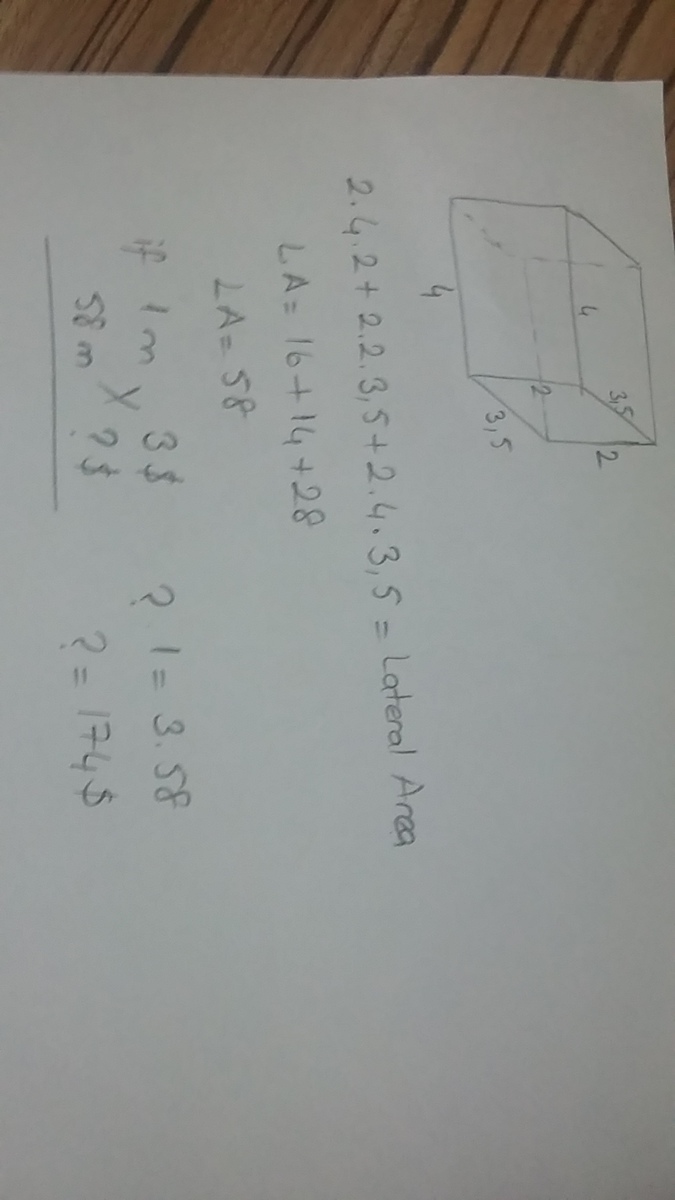 4
3,5
2
2
4
3,5
2.4.2 + 2.2.3,5 + 2.4.3,5 = Lateral Area
LA = 16 + 14 + 28
LA = 58
if 1 m X 3$ ? 1 = 3.58
58 m ? $ ? = 174$